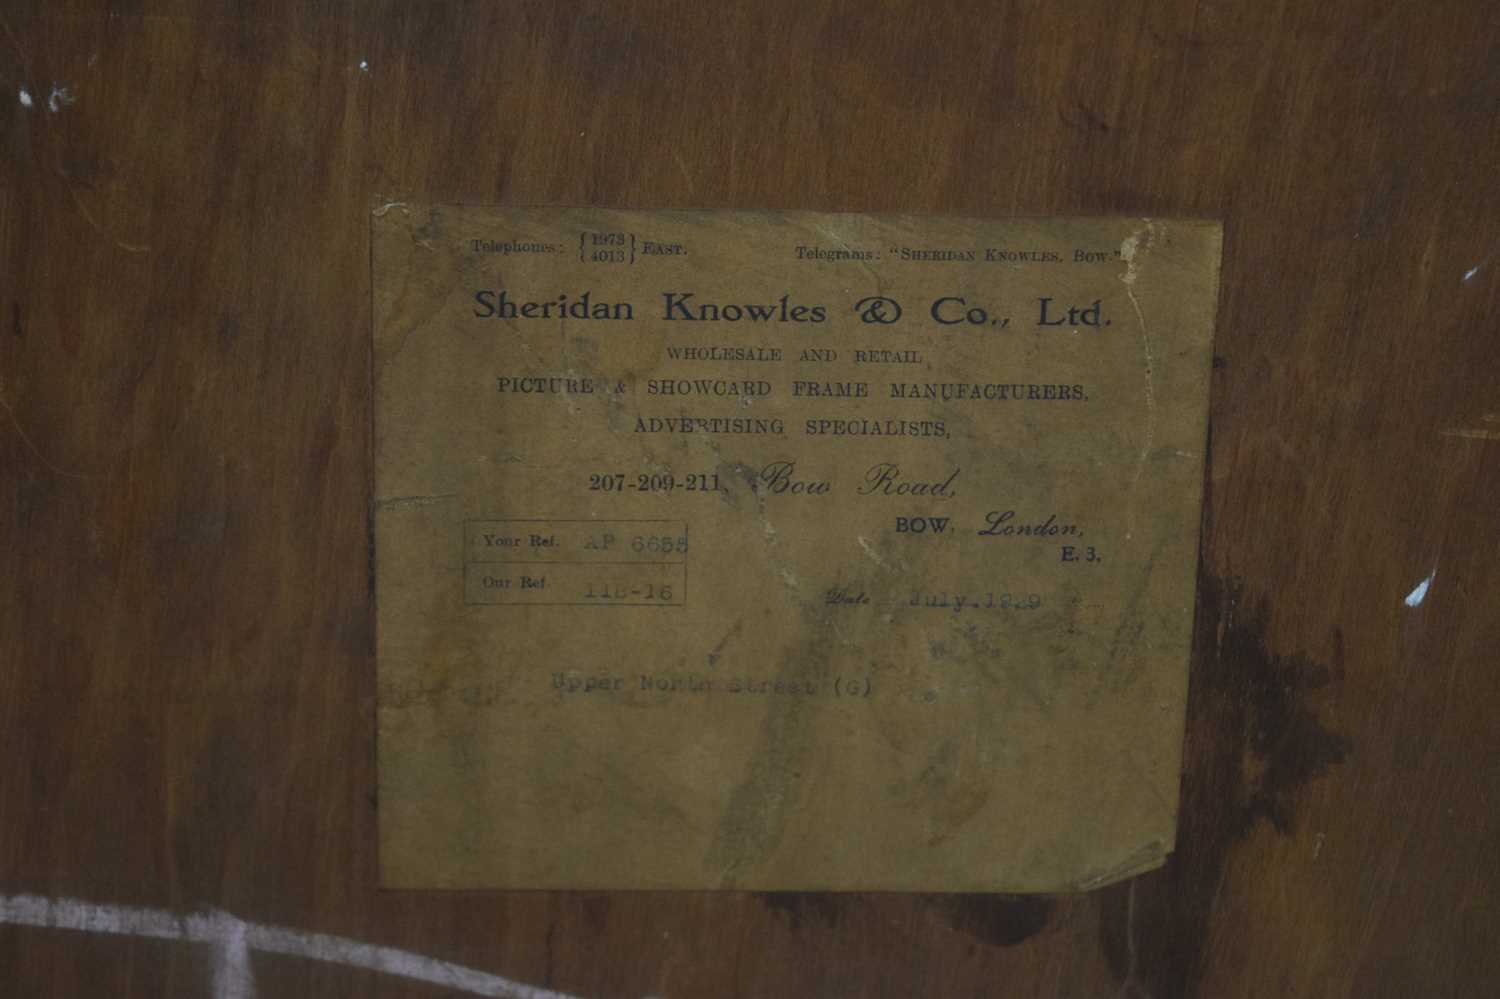 Telephones: { 1973 4013 } EAST. Telegrams: "SHERIDAN KNOWLES, BOW."
Sheridan Knowles & Co., Ltd.
WHOLESALE AND RETAIL
PICTURE & SHOWCARD FRAME MANUFACTURERS,
ADVERTISING SPECIALISTS,
207-209-211, Bow Road,
BOW, London,
E. 3.
Your Ref. AP 6658
Our Ref. 118-16
Date July.1929
Upper North Street (G)